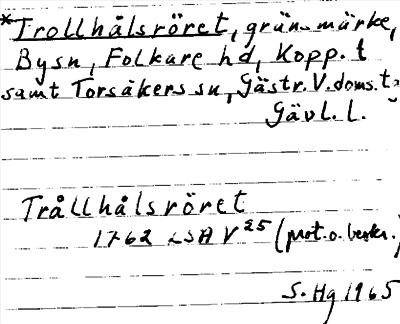 *Trollhålsröret, gräns märke,
By sn, Folkare hd, Kopp. l
samt Torsåkers sn, Gästr. V. doms. t.
Gävl. l.
Trållhålsröret
1762 LSA V 25 (prot. o. beskr.)
S. Hg 1965